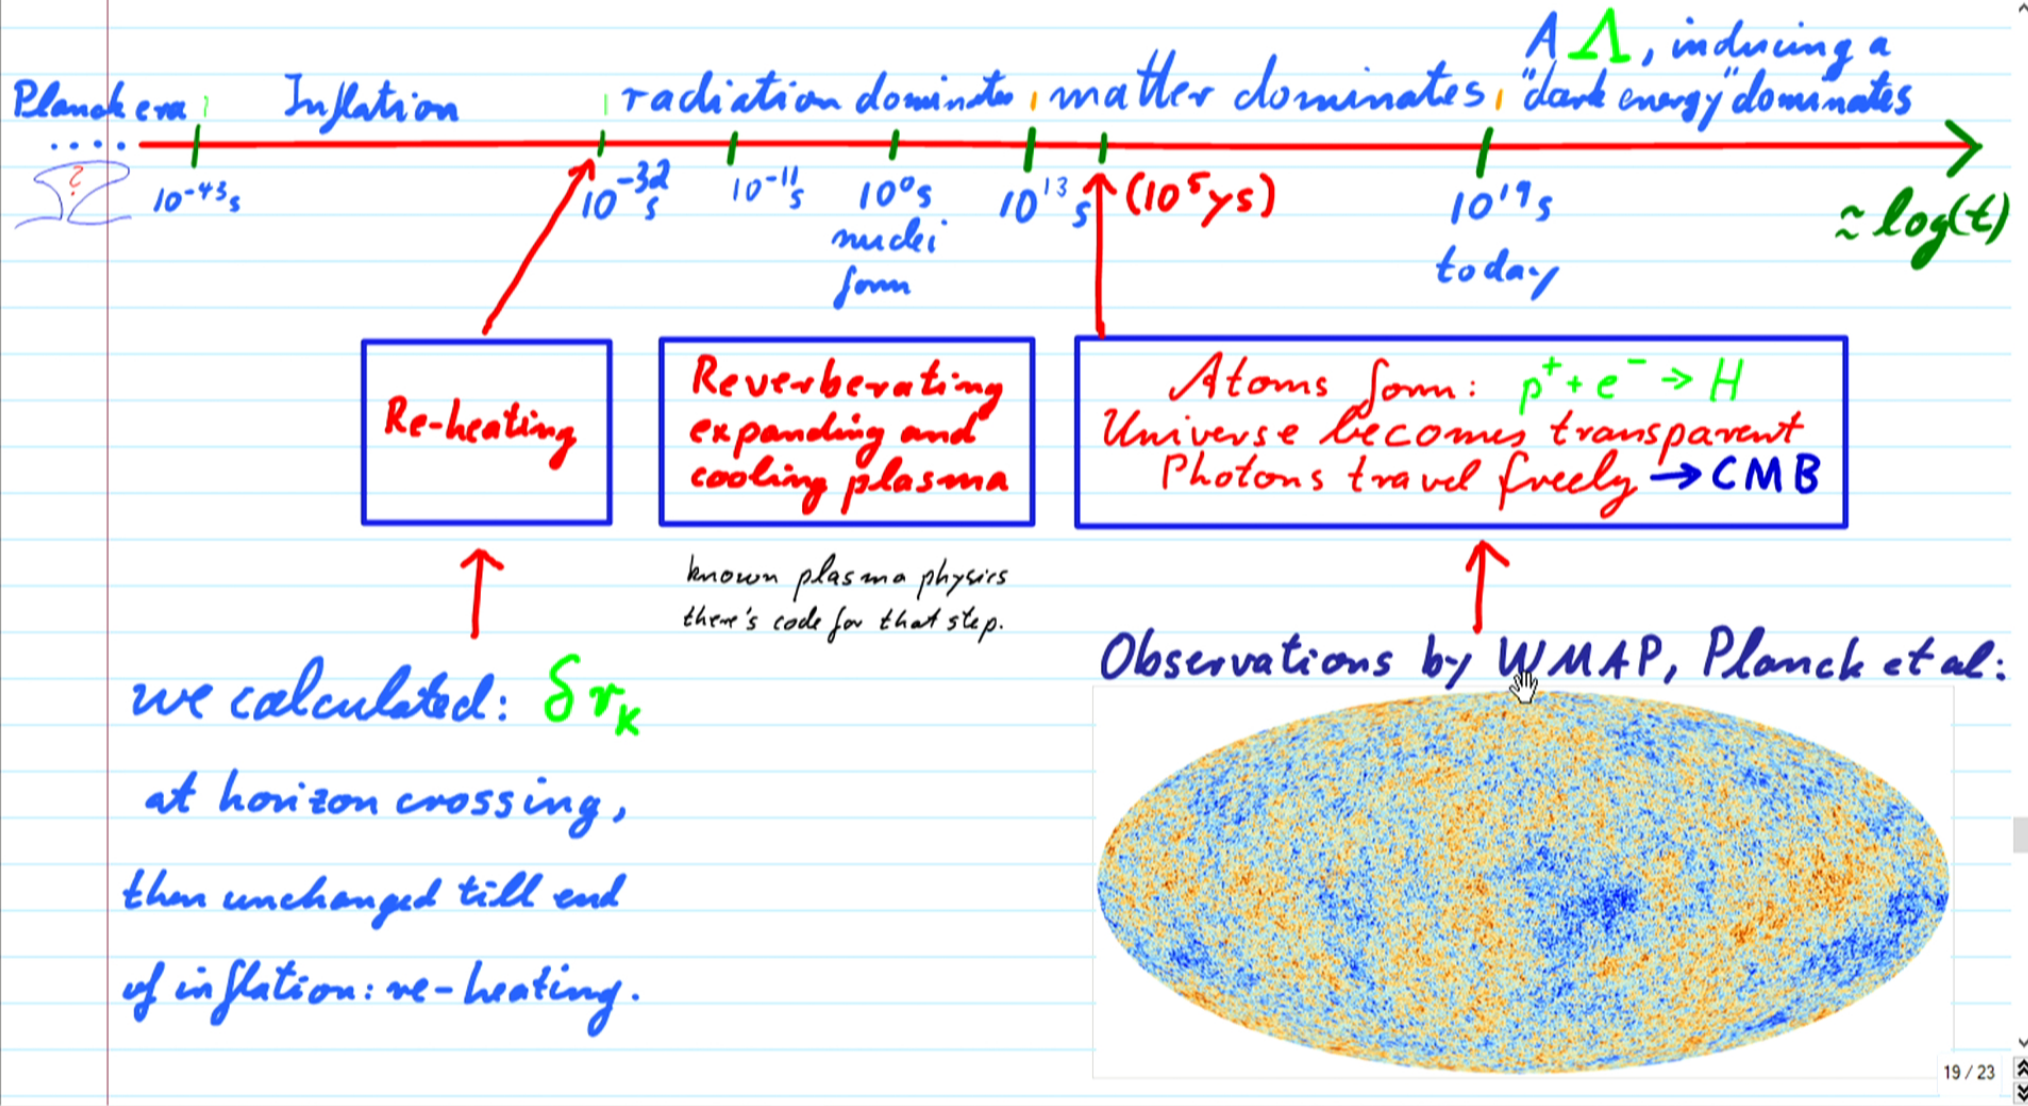 A Λ, inducing a
Planck era Inflation radiation dominates matter dominates "dark energy" dominates
....
?
10⁻⁴³s 10⁻³² s 10⁻¹¹ s 10⁰s 10¹³ s (10⁵ys) 10¹⁹ s ≈ log(t)
nuclei
form
today
Re-heating
Reverberating
expanding and
cooling plasma
Atoms form: p⁺ + e⁻ → H
Universe becomes transparent
Photons travel freely → CMB
known plasma physics
there's code for that step.
Observations by WMAP, Planck et al:
we calculated: δr_k
at horizon crossing,
then unchanged till end
of inflation: re-heating.
19 / 23